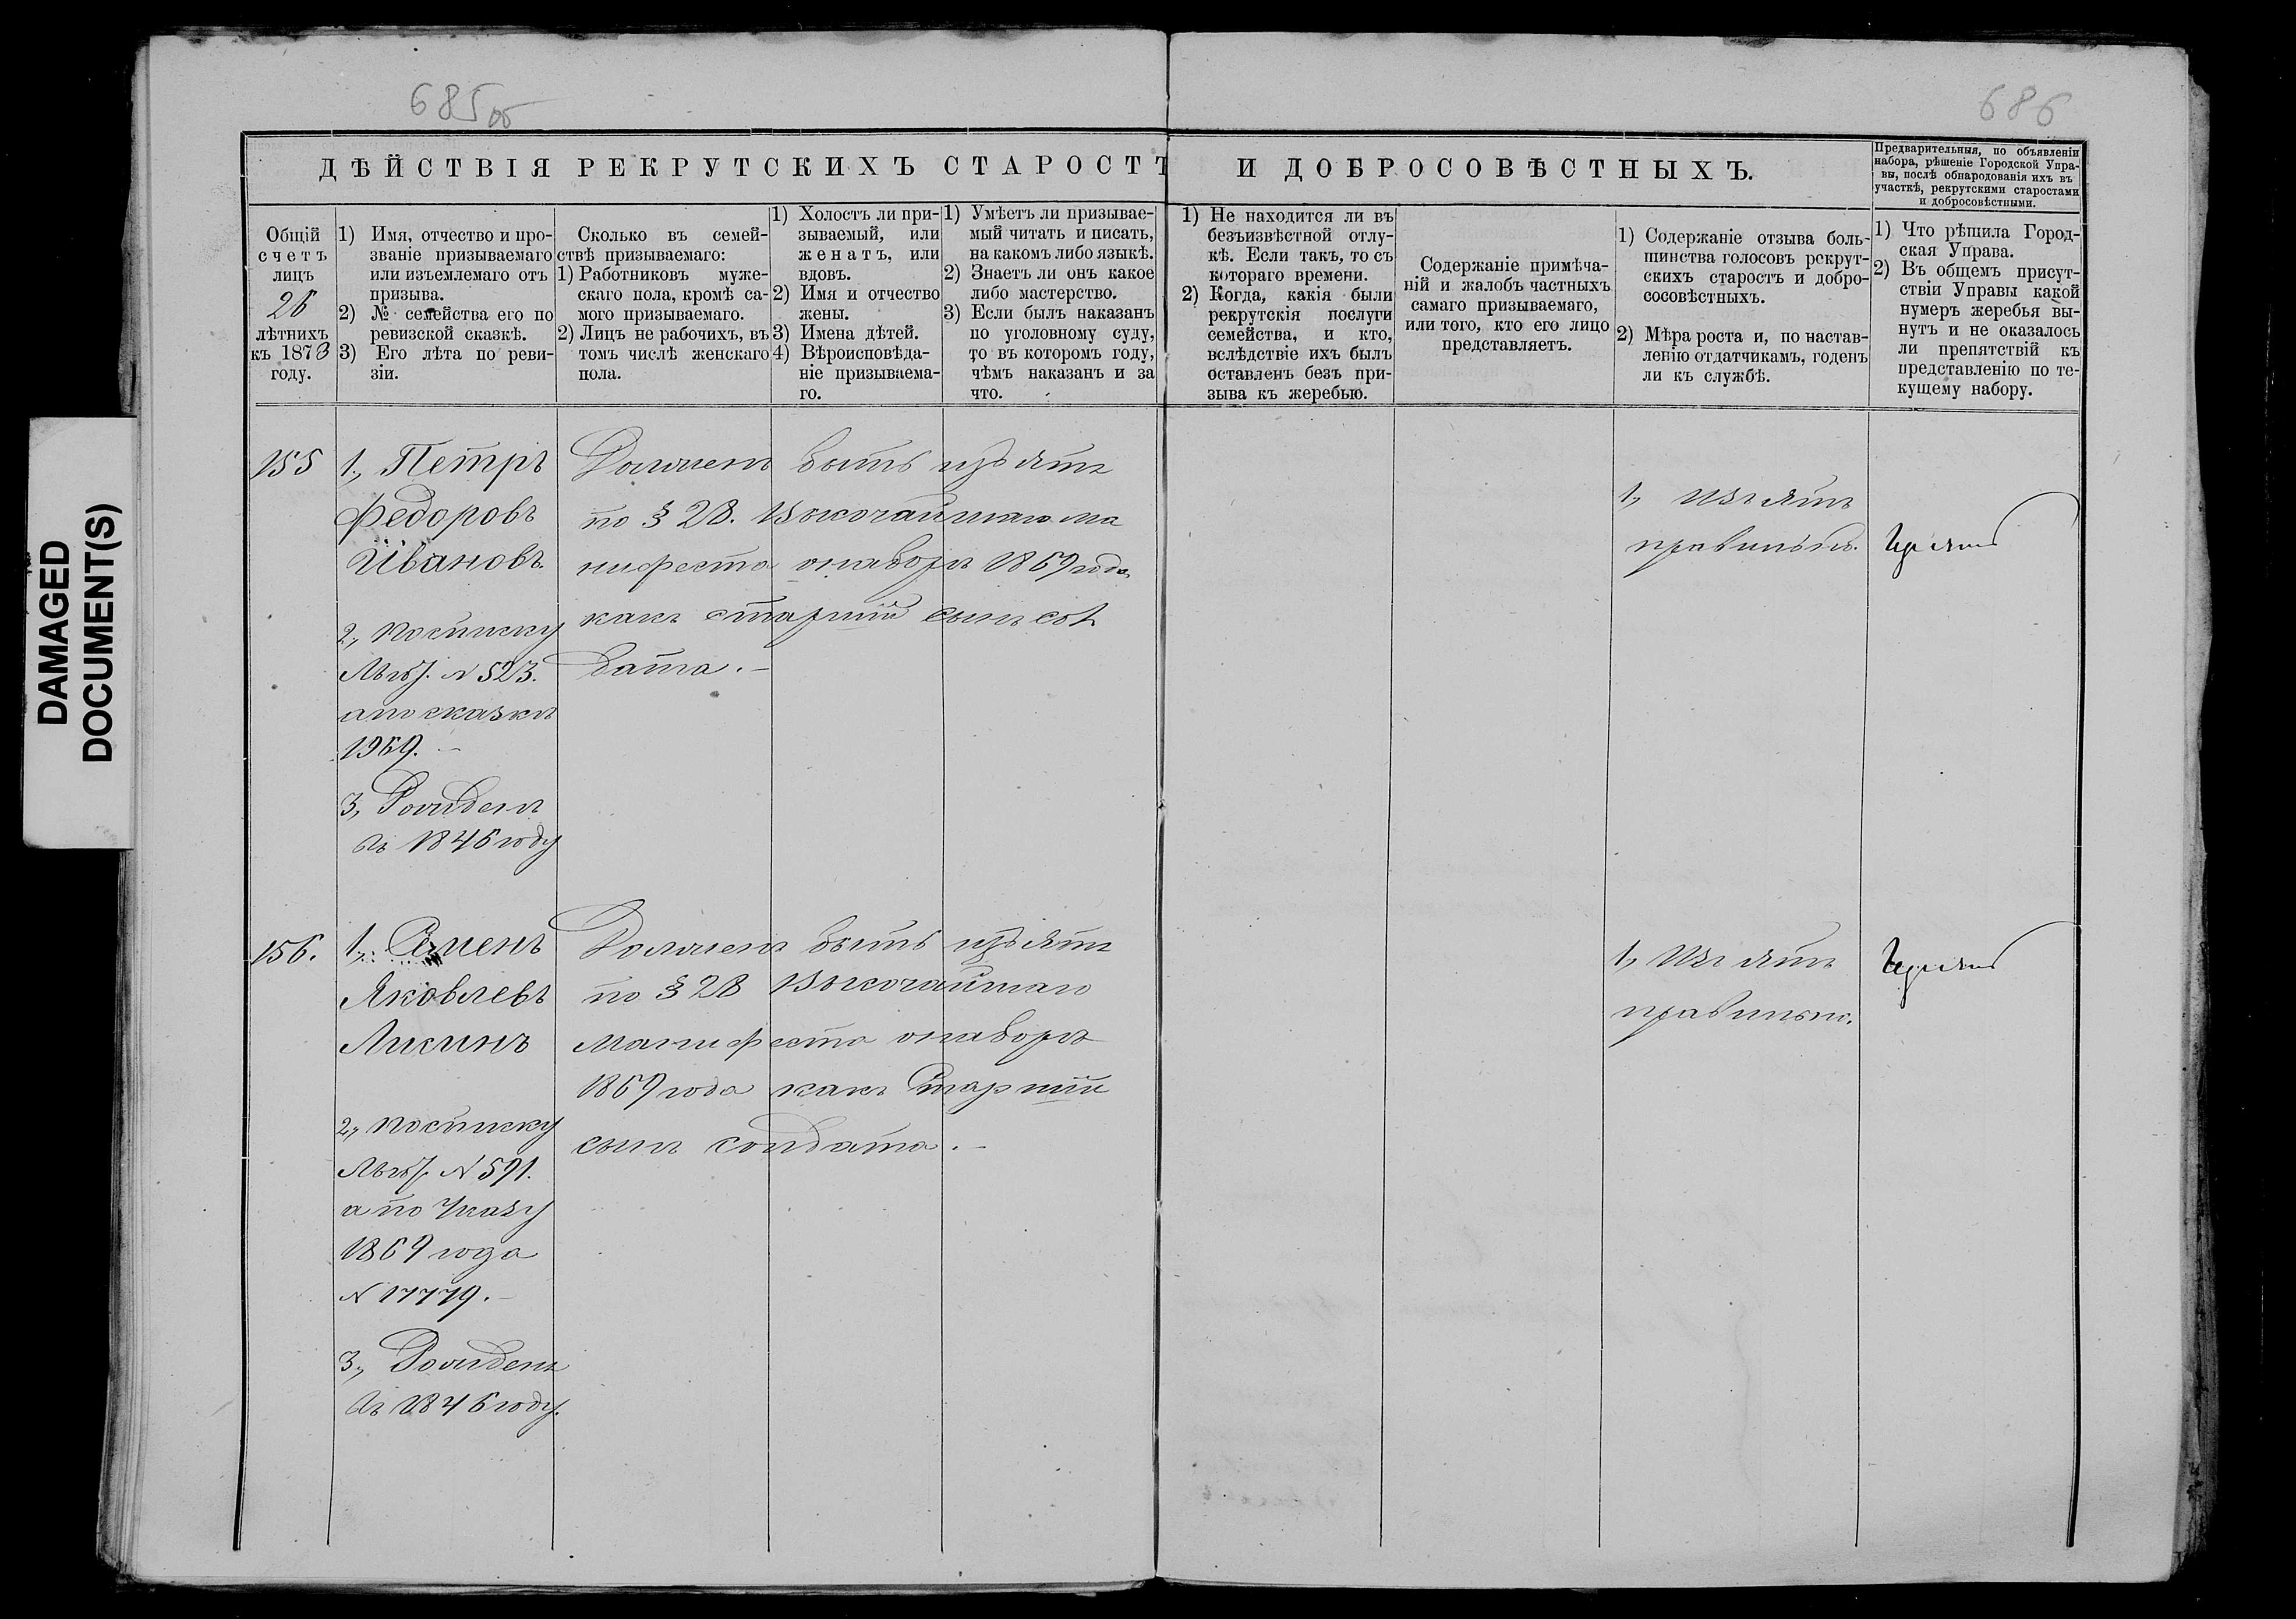 685 об
686
DAMAGED
DOCUMENT(S)
ДѢЙСТВІЯ РЕКРУТСКИХЪ СТАРОСТЪ И ДОБРОСОВѢСТНЫХЪ.
Предварительныя, по объявленіи
набора, рѣшеніе Городской Упра-
вы, послѣ обнародованія ихъ въ
участкѣ, рекрутскими старостами
и добросовѣстными.
Общій
счетъ
лицъ
26
лѣтнихъ
къ 1873
году.
1) Имя, отчество и про-
званіе призываемаго
или изъемлемаго отъ
призыва.
2) № семейства его по
ревизской сказкѣ.
3) Его лѣта по реви-
зіи.
Сколько въ семей-
ствѣ призываемаго:
1) Работниковъ муже-
скаго пола, кромѣ са-
мого призываемаго.
2) Лицъ не рабочихъ, въ
томъ числѣ женскаго
пола.
1) Холостъ ли при-
зываемый, или
женатъ, или
вдовъ.
2) Имя и отчество
жены.
3) Имена дѣтей.
4) Вѣроисповѣда-
ніе призываема-
го.
1) Умѣетъ ли призывае-
мый читать и писать,
на какомъ либо языкѣ.
2) Знаетъ ли онъ какое
либо мастерство.
3) Если былъ наказанъ
по уголовному суду,
то въ которомъ году,
чѣмъ наказанъ и за
что.
1) Не находится ли въ
безъизвѣстной отлу-
кѣ. Если такъ, то съ
котораго времени.
2) Когда, какія были
рекрутскія послуги
семейства, и кто,
вслѣдствіе ихъ былъ
оставленъ безъ при-
зыва къ жеребью.
Содержаніе примѣча-
ній и жалобъ частныхъ
самаго призываемаго,
или того, кто его лицо
представляетъ.
1) Содержаніе отзыва боль-
шинства голосовъ рекрут-
скихъ старостъ и добро-
сосовѣстныхъ.
2) Мѣра роста и, по настав-
ленію отдатчикамъ, годенъ
ли къ службѣ.
1) Что рѣшила Город-
ская Управа.
2) Въ общемъ присут-
ствіи Управы какой
нумеръ жеребья вы-
нутъ и не оказалось
ли препятствій къ
представленію по те-
кущему набору.
155
1, Петръ
Федоровъ
Ивановъ.
2, по списку
№ 523.
а по сказкѣ
1969. —
3, Рожденъ
въ 1846 году
Долженъ быть изъятъ
по § 28. Высочайшаго ма
нифеста о наборѣ 1869 года,
какъ старшій сынъ сол
дата. —
1, Изъятъ
правильно.
Изъятъ
156.
1, Семенъ
Яковлевъ
Ликинъ
2, по списку
№ 591.
а по Указу
1869 года
№ 17779. —
3, Рожденъ
въ 1846 году.
Долженъ быть изъятъ
по § 28 Высочайшаго
манифеста о наборѣ
1869 года какъ Старшій
сынъ солдата. —
1, Изъятъ
правильно.
Изъятъ